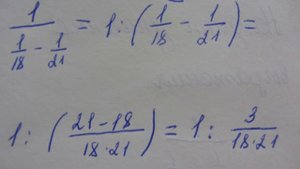 1/(1/18 - 1/21) = 1 : (1/18 - 1/21) =
1 : ((21-18)/(18·21)) = 1 : 3/(18·21)